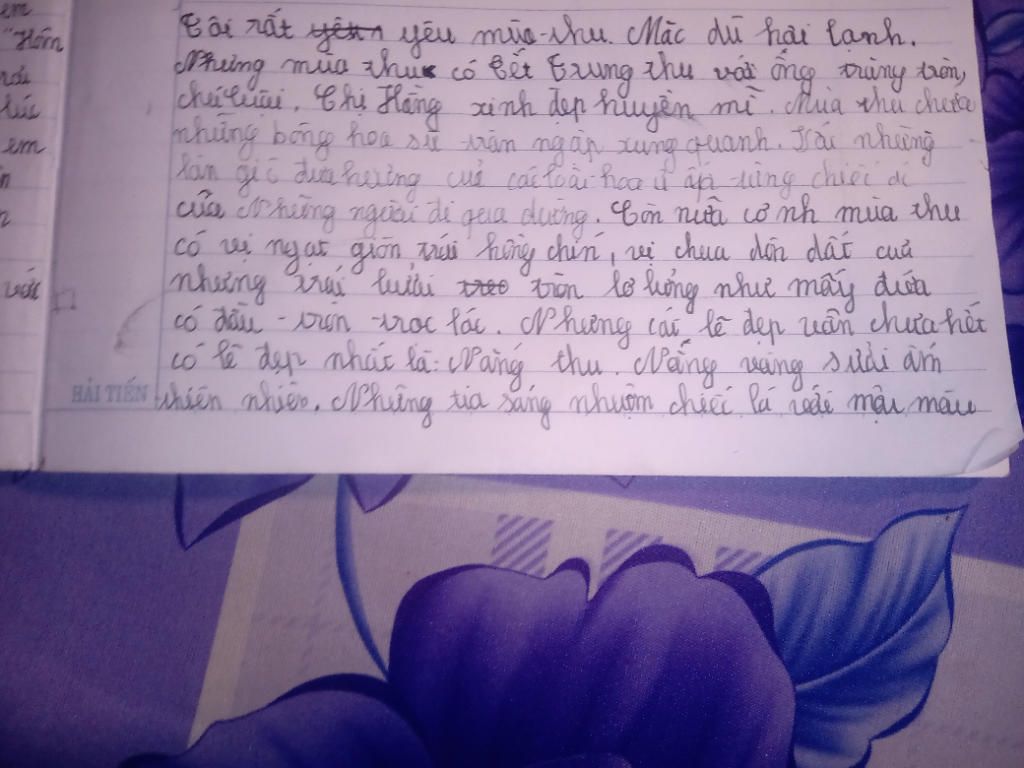 em
"Hôm
lúc
em
n
với
Tôi rất yêu mùa thu. Mặc dù hài lạnh.
Nhưng mùa thu có Tết Trung thu với ống trăng tròn,
chú cuội. Chị Hằng xinh đẹp huyền mì. Mùa thu chưa
những bông hoa sữ tràn ngập xung quanh. Rồi những
làn gió đưa hương cuả các loài hoa ủ ấp từng chiếc
của Những người đi qua đường. Còn nữa cơ nh mùa thu
có vị ngat giòn trái hồng chín, vị chua dôn dốt cuả
nhưng trái bưởi tròn lơ lửng như mấy đứa
có đầu tròn troc lóc. Nhưng cái lẽ đẹp vẫn chưa hết
có lẽ đẹp nhất là: Nắng thu. Nắng vàng sưởi ấm
thiên nhiên. Những tia sáng nhuộm chiếc lá với mậu màu
HẢI TIẾN